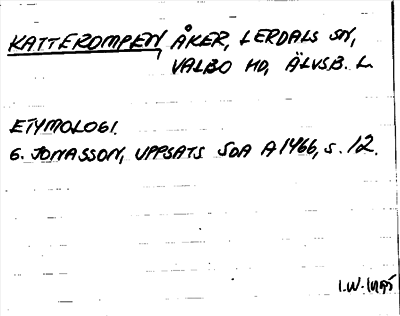 KATTEROMPEN, ÅKER, LERDALS SN,
VALBO HD, ÄLVSB. L.
ETYMOLOGI.
G. JONASSON, UPPSATS SOA A 1466, S. 12.
I.W.